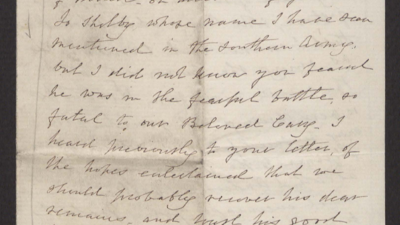 Jo Shelby whose name I have seen
mentioned in the Southern Army,
but I did not know you feared
he was in the fearful battle, so
fatal to our Beloved Cary. I
heard previously to your letter, of
the hopes entertained that we
should probably recover his dear
remains, and trust his good